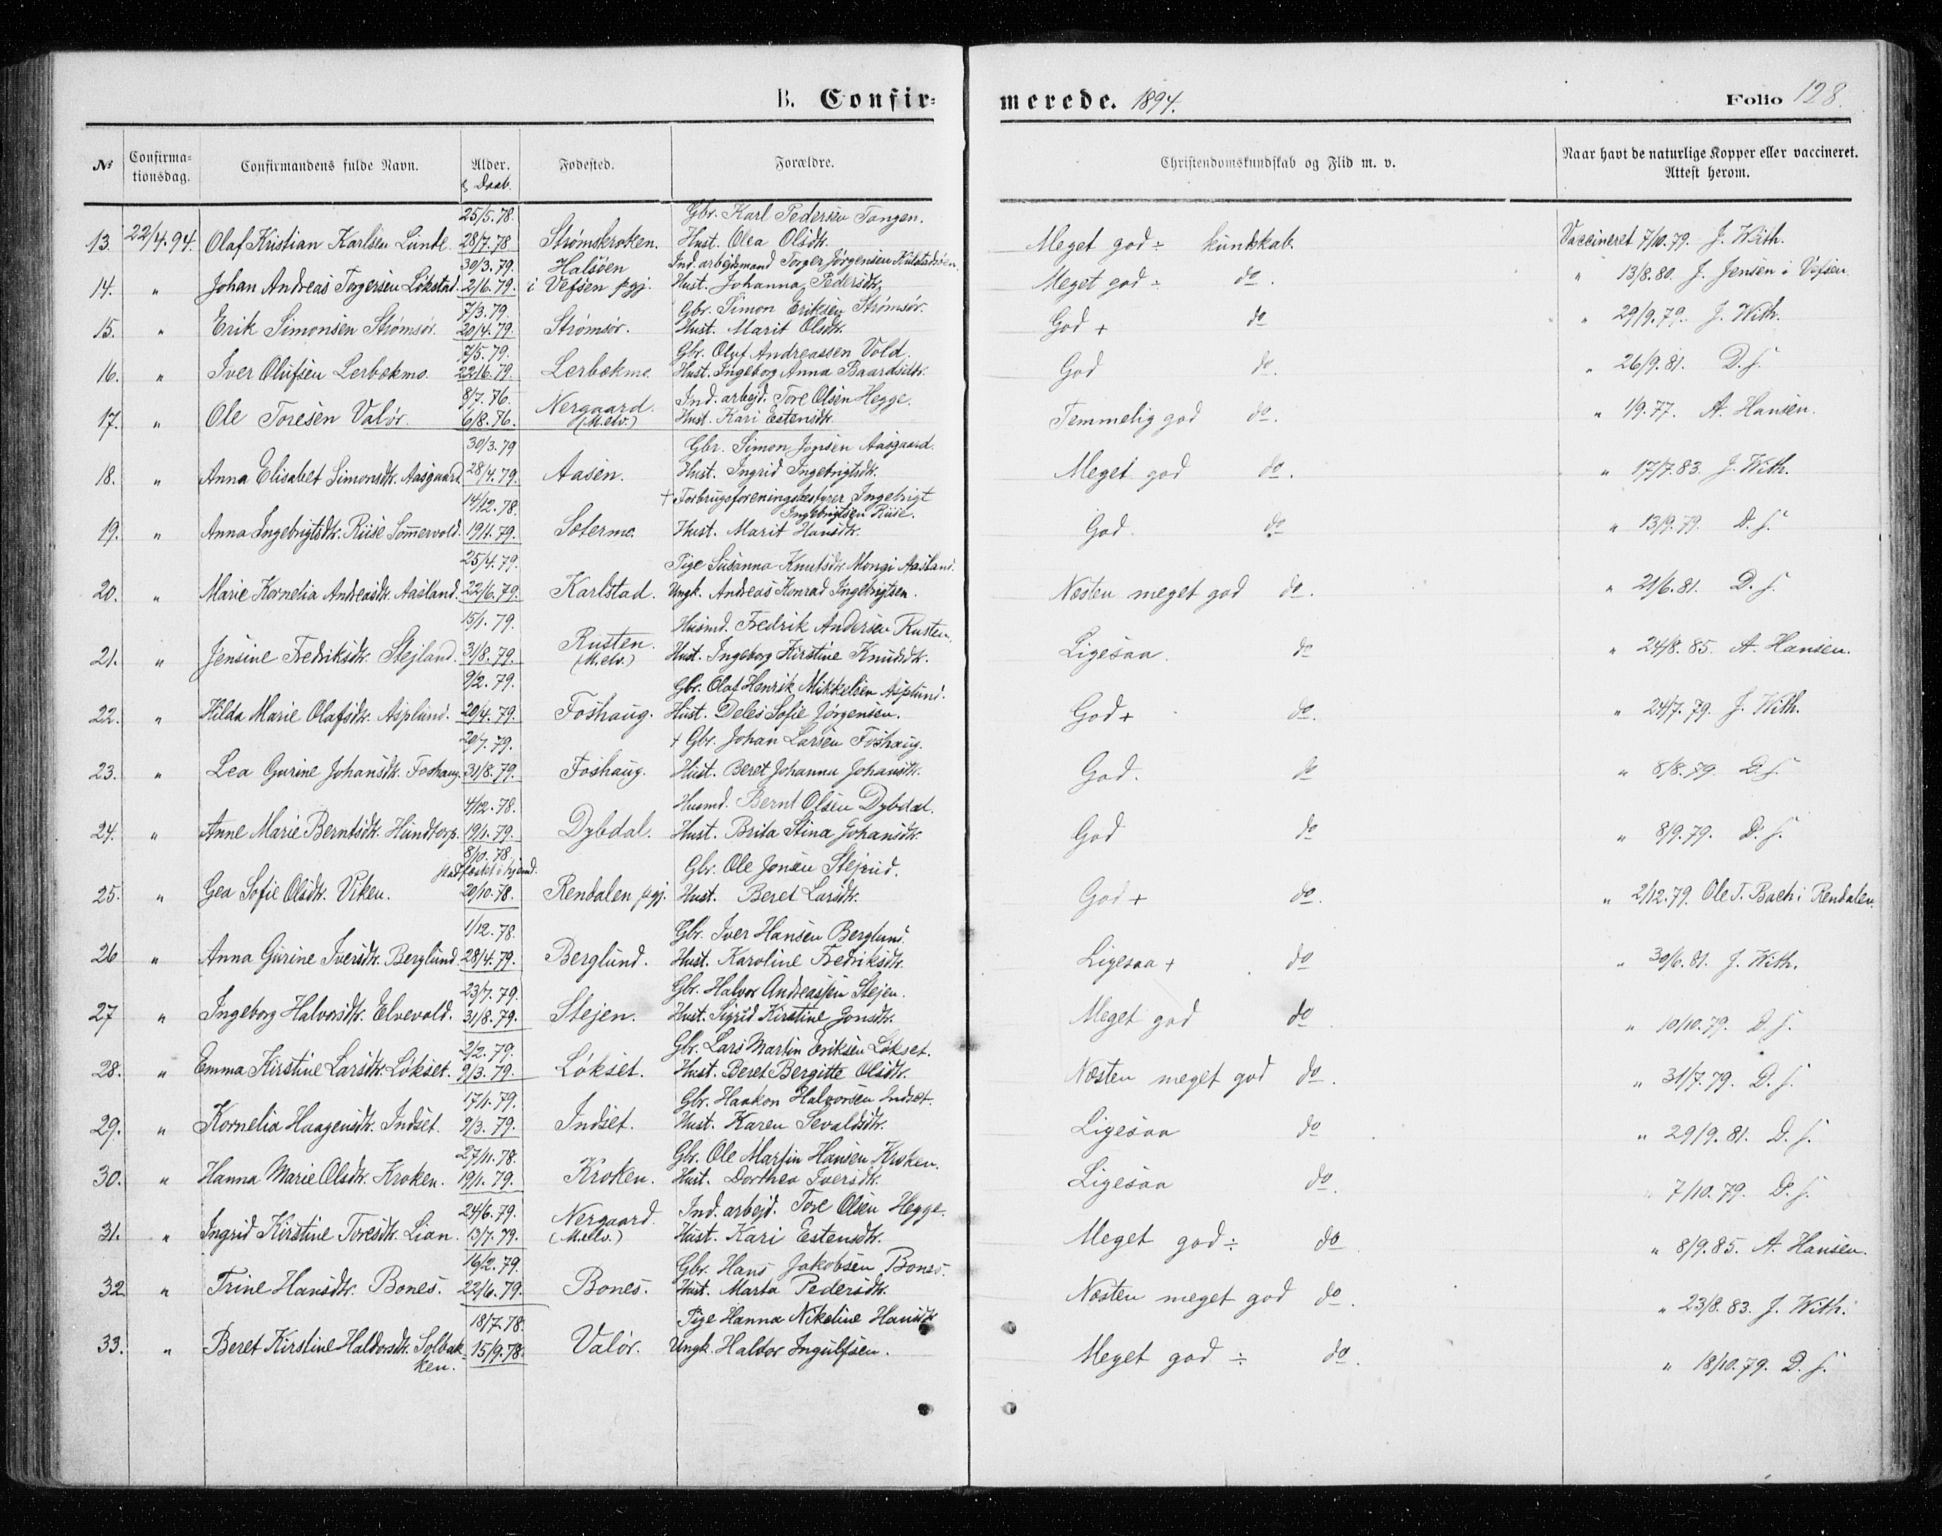 B. Confirmerede. 1894. Folio 128.
№ Confirmationsdag. Confirmandens fulde Navn. Alder. & Daab. Fødested. Forældre. Christendomskundskab og Flid m. v. Naar havt de naturlige Kopper eller vaccineret. Attest herom.
25/5.78. Gbr. Karl Pedersen Tangen.
13. 22/4.94. Olaf Kristian Karlsen Lunde. 28/7.78 Strømskroken. Hust. Olea Olsdtr. Meget god ÷ kundskab. Vaccineret 7/10.79. J. With.
30/3.79. Halsøen Ind. arbejdsmand Torger Jørgensen
14. " Johan Andreas Torgersen Løkstad. 2/6.79. i Vefsen pgj. Hust. Johanna Pedersdtr. Meget god ÷ do. " 13/8.80. J. Jensen i Vefsen
7/3.79. Gbr. Simon Eriksen Strømsør.
15. " Erik Simonsen Strømsør. 20/4.79. Strømsør. Hust. Marit Olsdtr. God + do " 29/9.79. J. With.
7/5.79. Gbr. Oluf Andreassen Vold.
16. " Iver Olufsen Lerbækmo. 22/6.79. Lerbækmo. Hust. Ingeborg Anna Baardsdtr. God do. " 26/9.81. D. S.
8/7.76. Nergaard. Ind. arbejd. Tore Olsen Hegge.
17. " Ole Toresen Valør. 6/8.76. (M.elv.) Hust. Kari Estensdtr. Temmelig god do. " 1/9.77. A. Hansen.
30/3.79 Gbr. Simon Jonsen Aasgaard.
18. " Anna Elisabet Simonsdtr. Aasgaard. 28/4.79. Aasen. Hust. Ingrid Ingebrigtsdtr. Meget god do. " 17/7.83. J. With.
14/12.78. + Forbrugsforeningsbestyrer Ingebrigt
Ingebrigtsen Riise.
19. " Anna Ingebrigtsdtr. Riise Sømervold. 19/1.79. Sætermo. Hust. Marit Hansdtr. God. do. " 13/9.79. D. S.
25/4.79. Pige Susanna Knutsdtr. Mongi Aasland.
20. " Marie Kornelia Andreasdtr. Aasland. 22/6.79. Karlstad. Ungk. Andreas Konrad Ingebrigtsen. Næsten meget god do. " 21/6.81. D. S.
15/1.79. Husmd. Fredrik Andersen Rusten.
21. " Jensine Fredriksdtr. Stejland. 31/8.79. Rusten. (M.elv.) Hust. Ingeborg Kirstine Knudsdtr. Ligesaa. do " 24/8.85. A. Hansen.
9/2.79. Gbr. Olaf Henrik Mikkelsen Asplund.
22. " Hilda Marie Olafsdtr. Asplund. 20/4.79. Foshaug. Hust. Deles Sofie Jørgensen. God + do. " 24/7.79. J. With.
20/7.79. + Gbr. Johan Larsen Foshaug.
23. " Lea Gurine Johansdtr. Foshaug. 31/8.79. Foshaug. Hust. Beret Johanna Johansdtr. God. do " 8/8.79. D. S.
4/12.78. Husmd. Bernt Olsen Dybdal.
24. " Anne Marie Berntsdtr. Hundtorp. 19/1.79. Dybdal. Hust. Brita Stina Johansdtr. God do " 8/9.79. D. S.
8/10.78 Gbr. Ole Jonsen Stejrud.
stadfæstet i hjemd.
25. " Gea Sofie Olsdtr. Viken. 20/10.78. Rendalen pgj. Hust. Beret Larsdtr. God + do. " 2/12.79. Ole T. Bach i Rendalen.
1/12.78. Gbr. Iver Hansen Berglund.
26 " Anna Gurine Iversdtr. Berglund 28/4.79. Berglund. Hust. Karoline Fredriksdtr. Ligesaa + do " 30/6.81. J. With.
23/7.79. Gbr. Halvor Andreassen Stejen.
27 " Ingeborg Halvorsdtr. Elvevold. 31/8.79. Stejen. Hust. Sigrid Kirstine Jonsdtr. Meget god do " 10/10.79. D. S.
2/2.79. Gbr. Lars Martin Eriksen Løkset.
28. " Emma Kirstine Larsdtr. Løkset. 9/3.79. Løkset. Hust. Beret Bergitte Olsdtr. Næsten meget god do. " 31/7.79. D. S.
17/1.79. Gbr. Haakon Halvorsen Indset.
29. " Kornelia Haagensdtr. Indset. 9/3.79. Indset. Hust. Karen Sevaldsdtr. Ligesaa do " 29/9.81. D. S.
27/11.78. Gbr. Ole Martin Hansen Kroken.
30. " Hanna Marie Olsdtr. Kroken. 19/1.79. Kroken. Hust. Dorthea Iversdtr. Ligesaa do. " 7/10.79. D. S.
24/6.79. Nergaard. Ind. arbejd. Tore Olsen Hegge.
31. " Ingrid Kirstine Toresdtr. Lian. 13/7.79. (M.elv.) Hust. Kari Estensdtr. Meget god ÷ do " 8/9.85. A. Hansen.
16/2.79. Gbr. Hans Jakobsen Bones.
32 " Trine Hansdtr. Bones. 22/6.79. Bones. Hust. Marta Pedersdtr. Næsten meget god do. " 23/8.83. J. With.
18/7.78. Pige Hanna Nikoline Hansdtr
33. " Beret Kirstine Haldorsdtr. Solbakken. 15/9.78. Valør. Ungk. Haldor Ingulfsen. Meget god ÷ do. " 18/10.79. D. S.